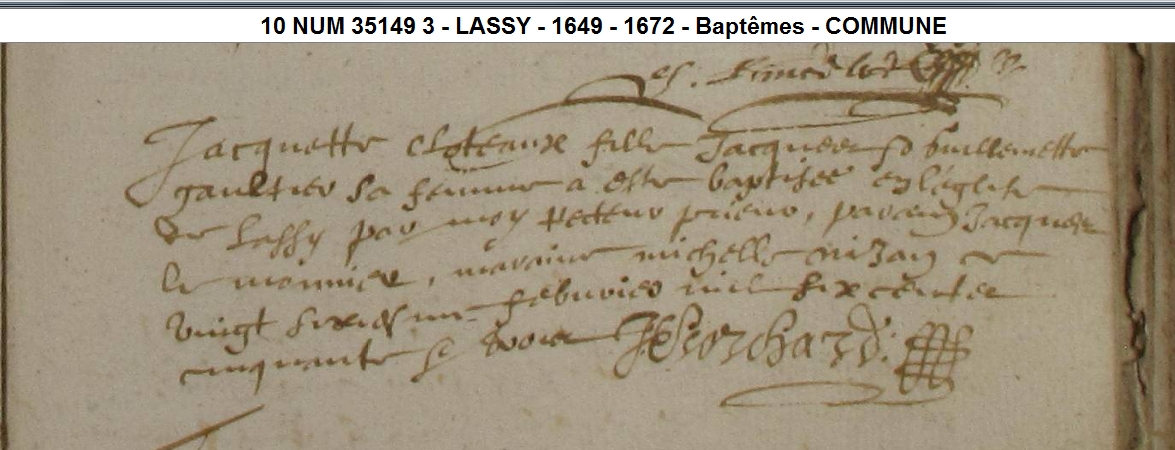 10 NUM 35149 3 - LASSY - 1649 - 1672 - Baptêmes - COMMUNE
Jacquette cloteaux fille Jacques & Guillemette
gaultier sa femme a esté baptisée en léglise
de Lassy par moy recteur prieur, parain Jacques
le monnier, maraine michelle nizan ce
vingt sixiesme febvrier mil six centz
cinquante &